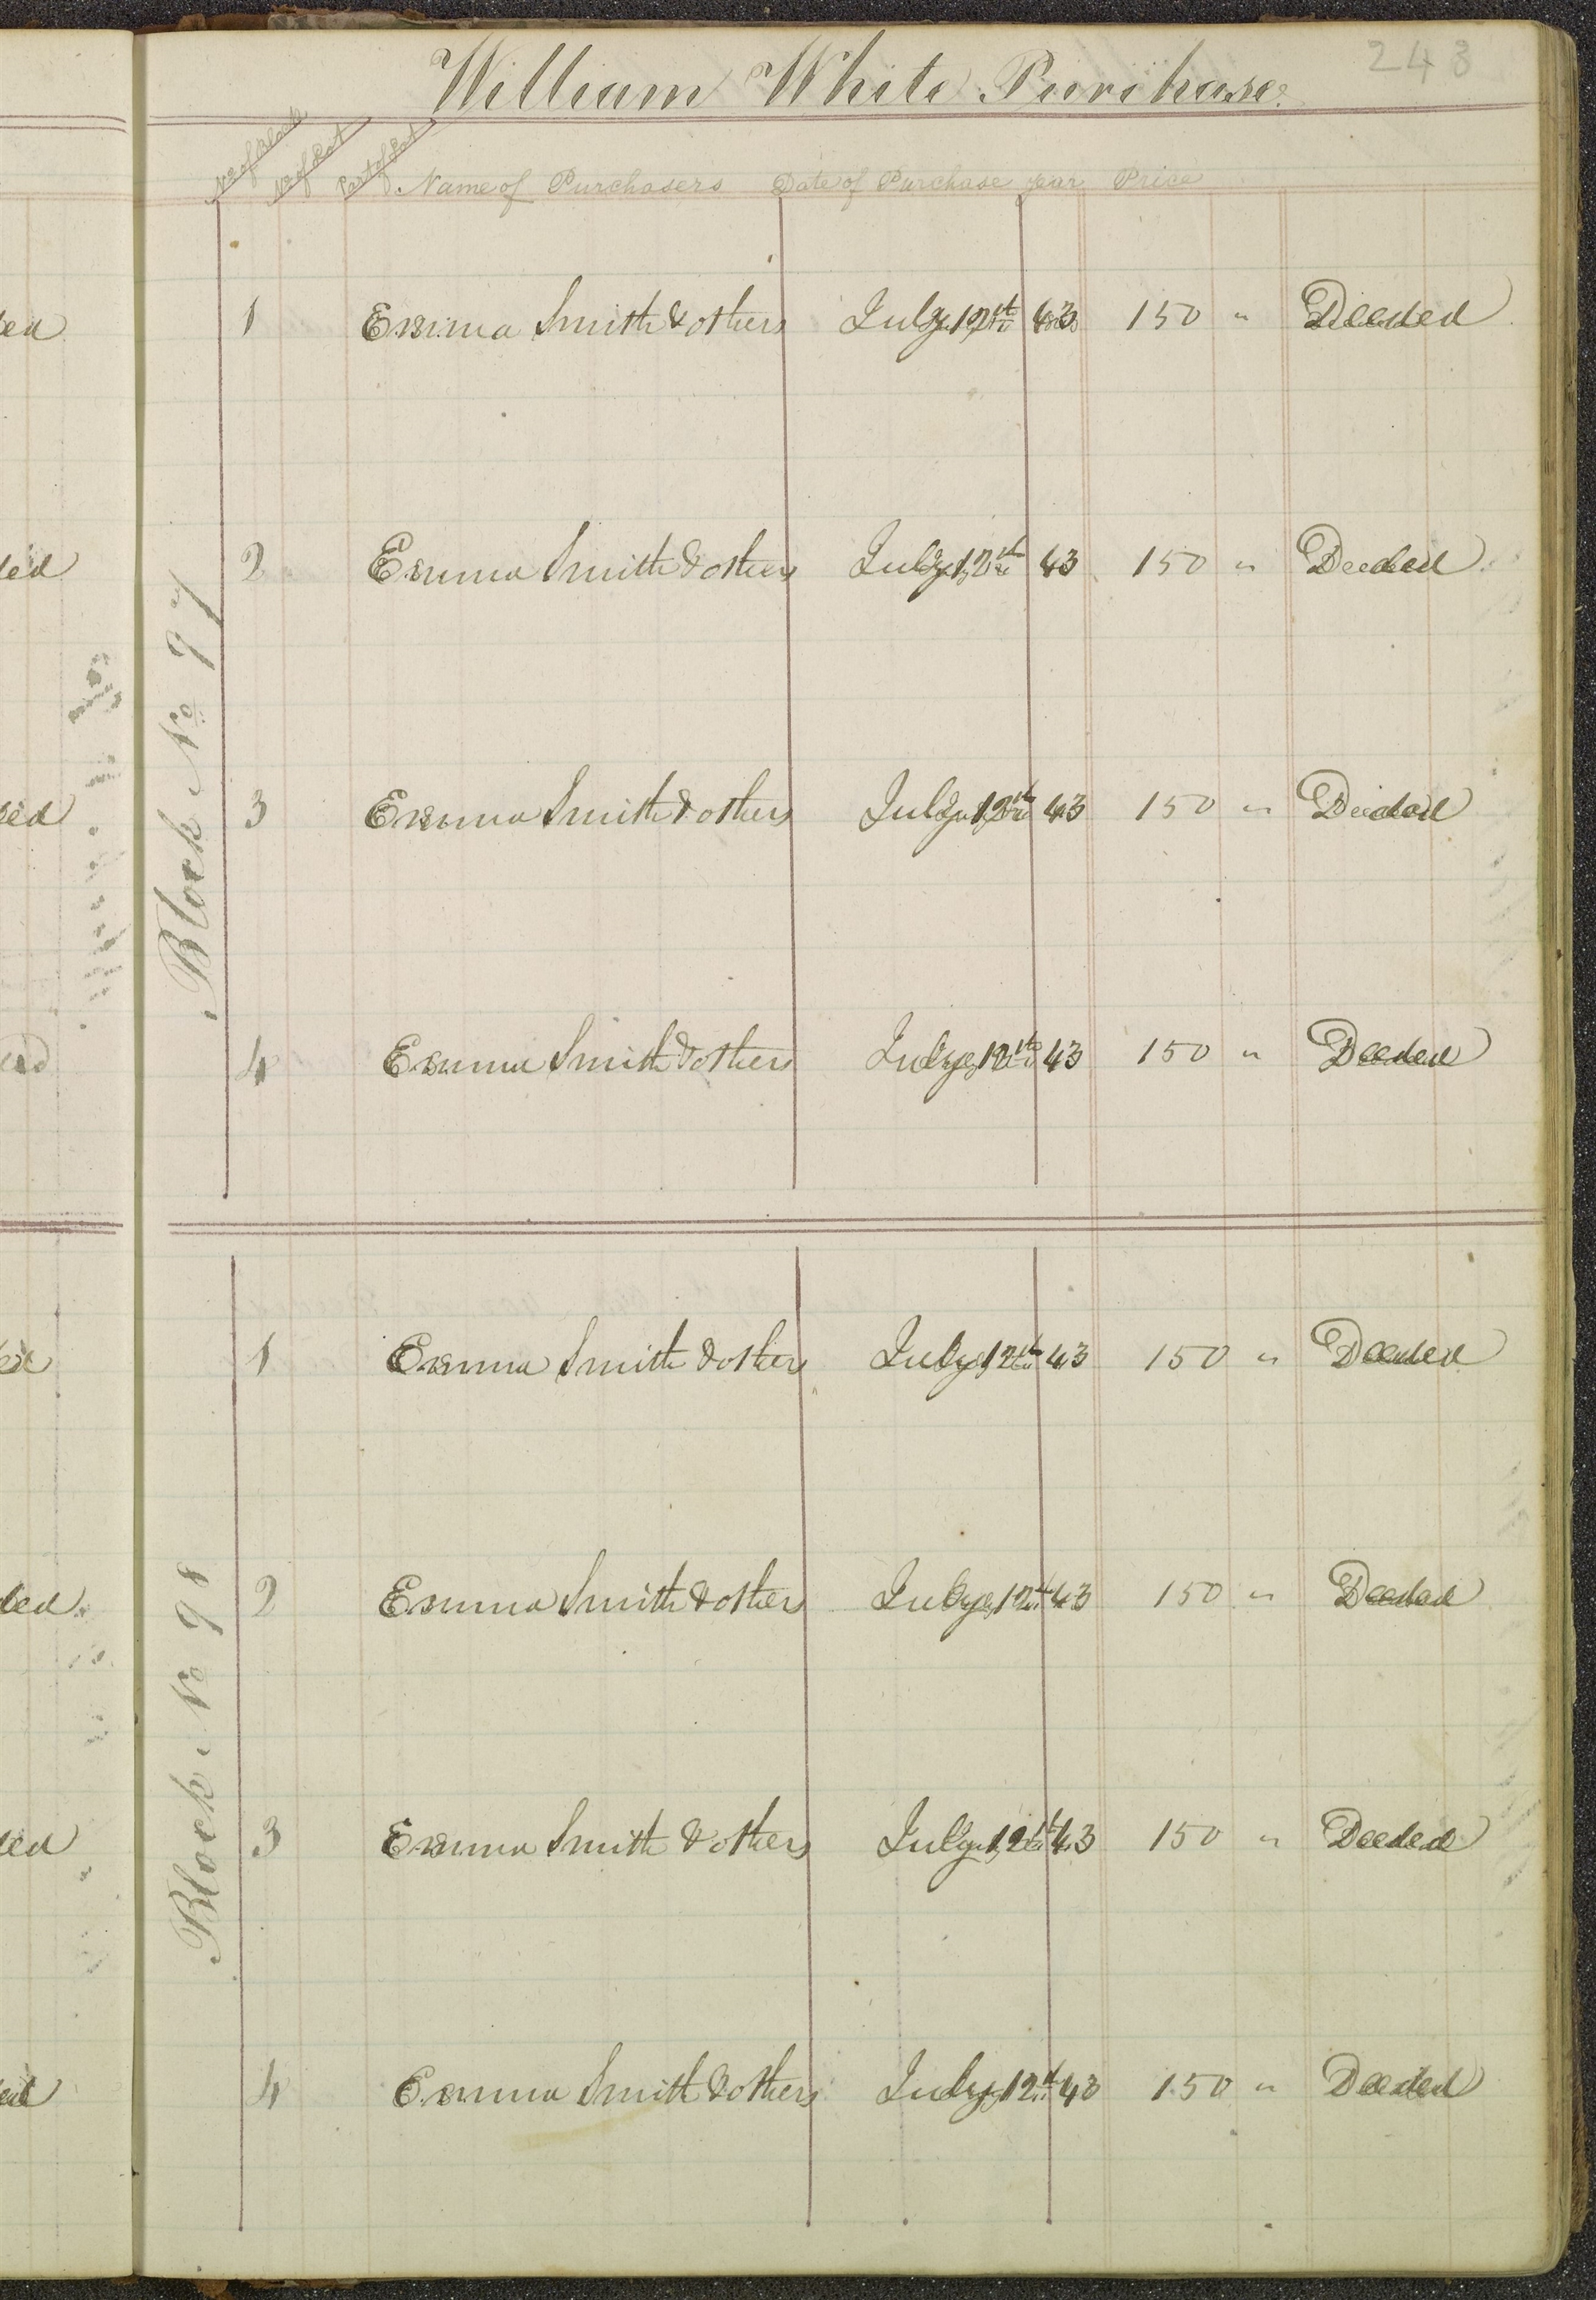 William White Purchase. 243
No of Block No of Lot Part of Lot Name of Purchasers Date of Purchase year Price
Block No 97
1 Emma Smith & others July 12th 43 150 " Deeded
2 Emma Smith & others July 12th 43 150 " Deeded
3 Emma Smith & others July 12th 43 150 " Deeded
4 Emma Smith & others July 12th 43 150 " Deeded
Block No 98
1 Emma Smith & others July 12th 43 150 " Deeded
2 Emma Smith & others July 12th 43 150 " Deeded
3 Emma Smith & others July 12th 43 150 " Deeded
4 Emma Smith & others July 12th 43 150 " Deeded